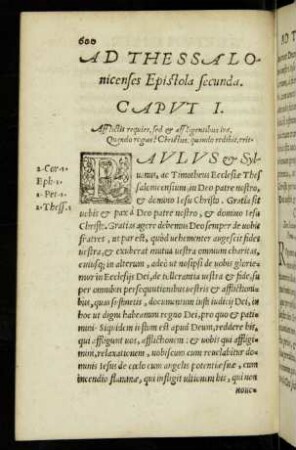 600
AD THESSALO-
nicenses Epistola secunda.
CAPVT I.
Afflictis requies, sed & affligentibus
Quando regnet Christus, quando redibit, erit.
PAVLVS & Syl-
uanus, ac Timotheus Ecclesiæ Thes
2. Cor. 1.
salonicensium, in Deo patre nostro,
Eph. 1.
& domino Iesu Christo. Gratia sit
1. Pet. 1.
uobis & pax à Deo patre nostro, & domino Iesu
1. Thess. 1
Christo. Gratias agere debemus Deo semper de uobis
fratres, ut par est, quòd uehementer augescit fides
uestra, & exuberat mutua uestra omnium charitas,
in alterum, adeò ut nosipsi de uobis glorie-
mur in Ecclesijs Dei, de tollerantia uestra & fide, su
per omnibus persequutionibus uestris & afflictioni-
bus, quas sustinetis, documentum iusti iudicij Dei, in
hoc ut digni habeamini regno Dei, pro quo & pati-
mini. Siquidem iustum est apud Deum, reddere his,
qui affligunt uos, afflictionem : & uobis qui affligi-
mini, relaxationem, uobiscum cum reuelabitur do-
minus Iesus de cœlo cum angelis potentiæ suæ, cum
incendio flammæ, qui infligit ultionem his, qui non
noue-